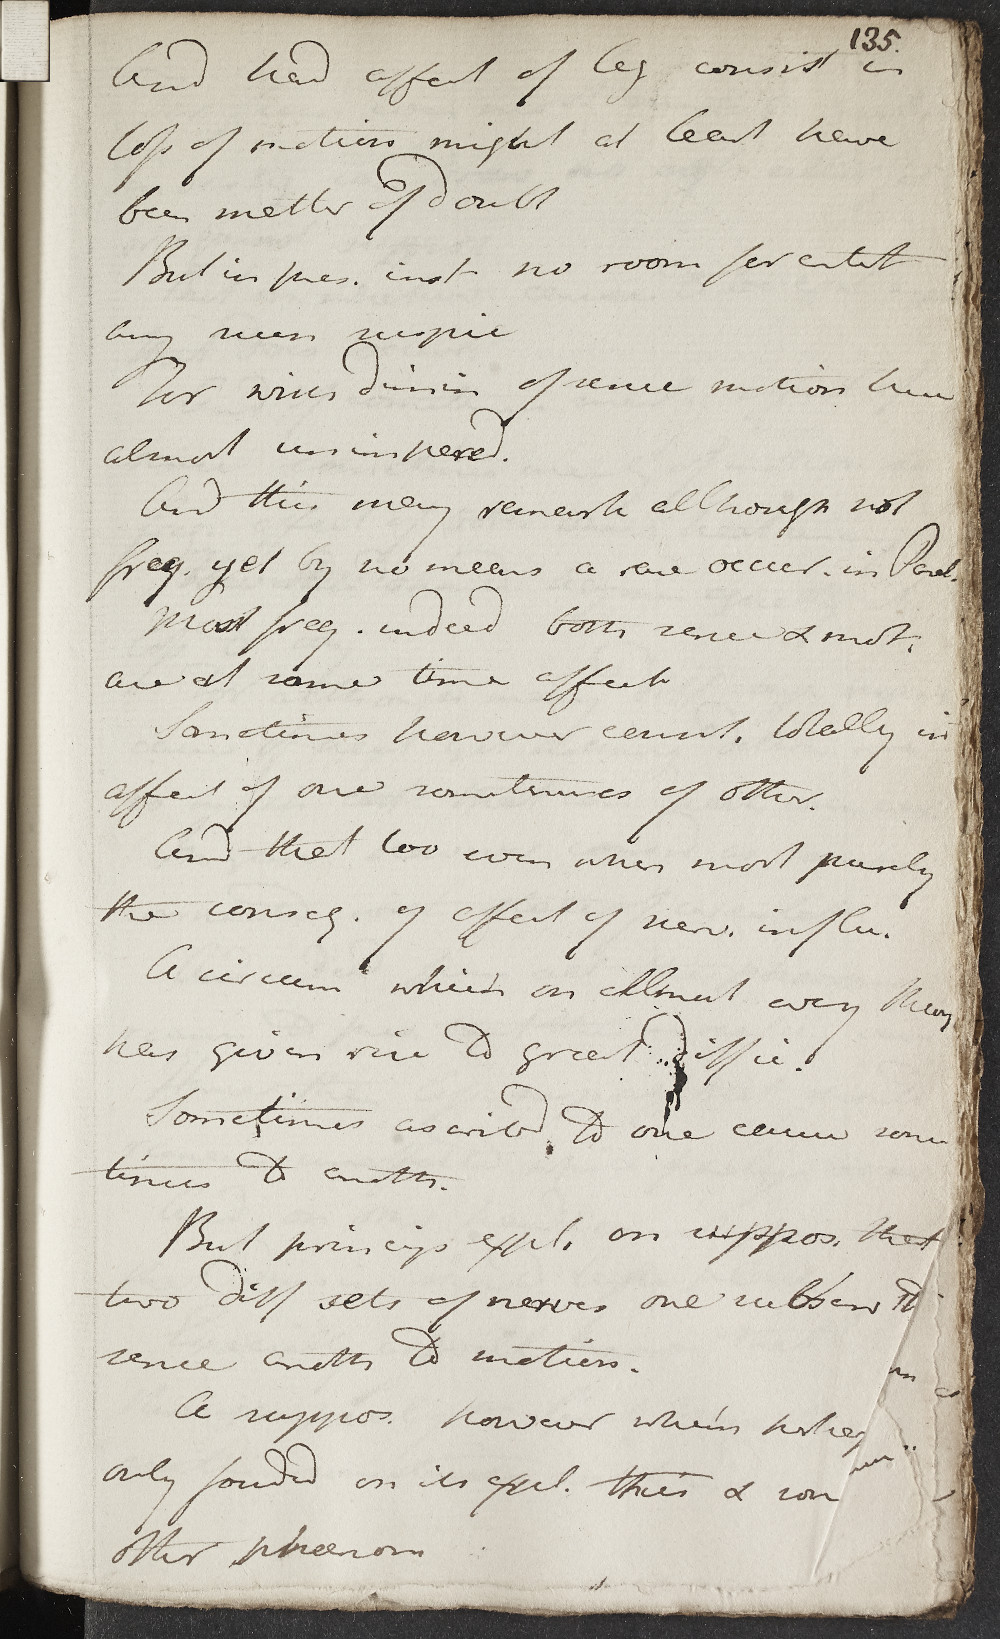 135.
And had affect of leg consist in
loss of motion might at least have
been matter of doubt
But in pres. inst no room for entert
any such suspic
For when dimin of sense motion here
almost unimpared.
And this may remark although not
freq. yet by no means a rare occur. in Paral.
Most freq. indeed both sence & mot.
are at same time affect
Sometimes however consist. totally in
affect of one sometimes of other.
And that too even when most purely
the conseq. of affect of nerv. influ.
A circum which on allmost every theory
has given rise to great diffic.
Sometimes ascribed to one cause some
times to anoth.
But princip expl. on suppos. that
two diff sets of nerves one subserv to
sence anoth to motion.
A suppos. however which perhap
only founded on its expl. this & som
other phaenom